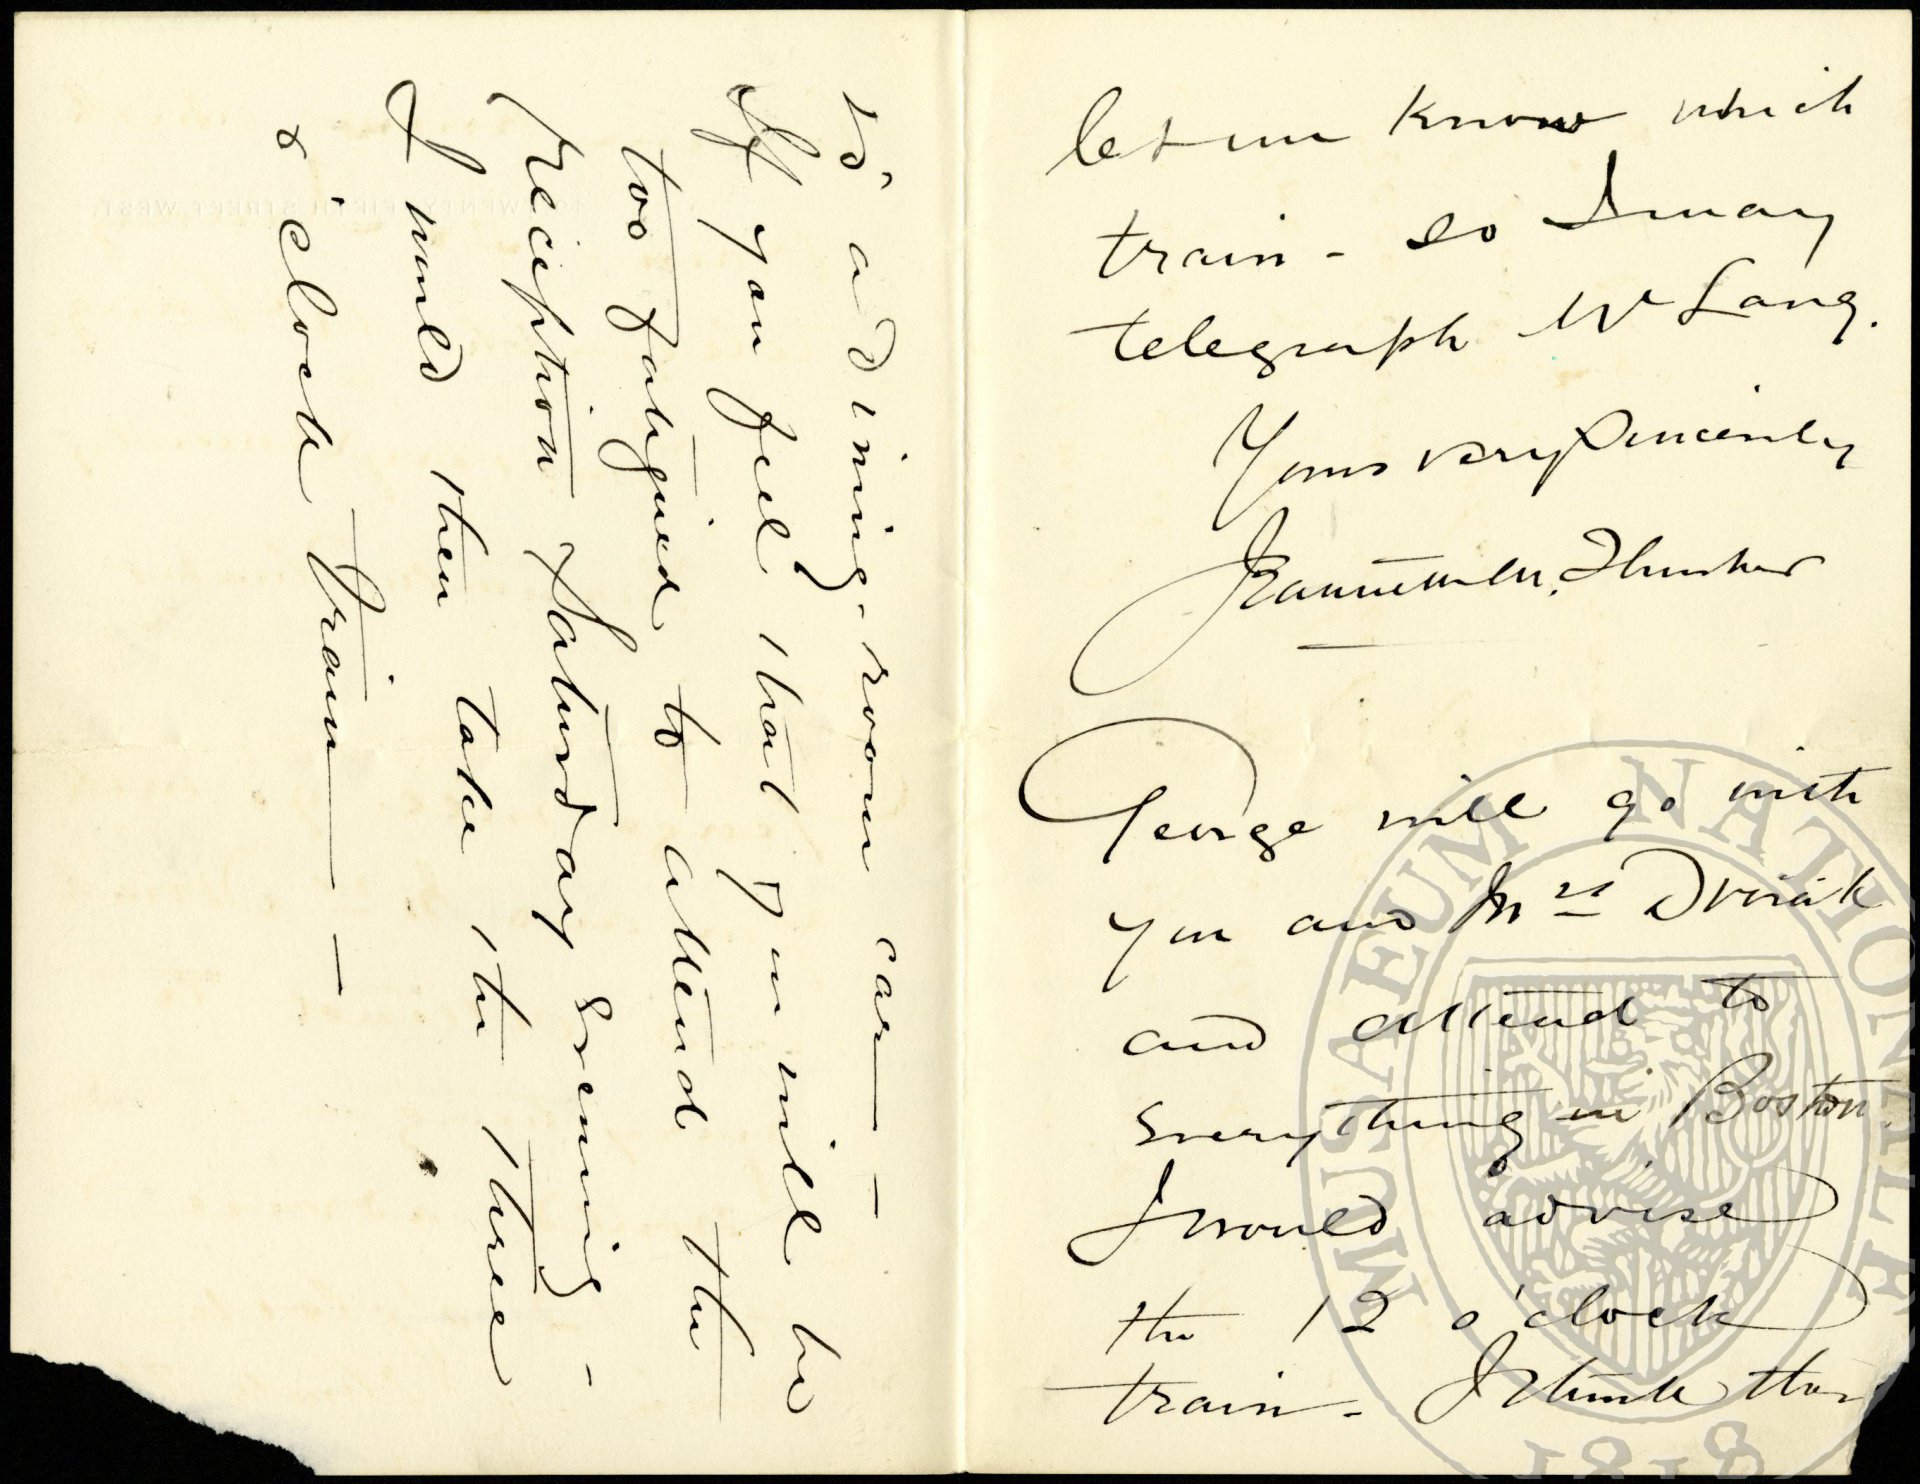 let me know which
train - so I may
telegraph Mr Lang.
Yours very Sincerely
Jeannette M. Thurber
George will go with
you and Mrs Dvořák
and attend to
everything in Boston
I would advise
the 12 o'clock
train - I think that
is a dining-room car -
If you feel that you will be
too fatigued to attend the
reception Saturday evening -
I would then take the three
o'clock train -
MUSAEUM NATIONALE
1818